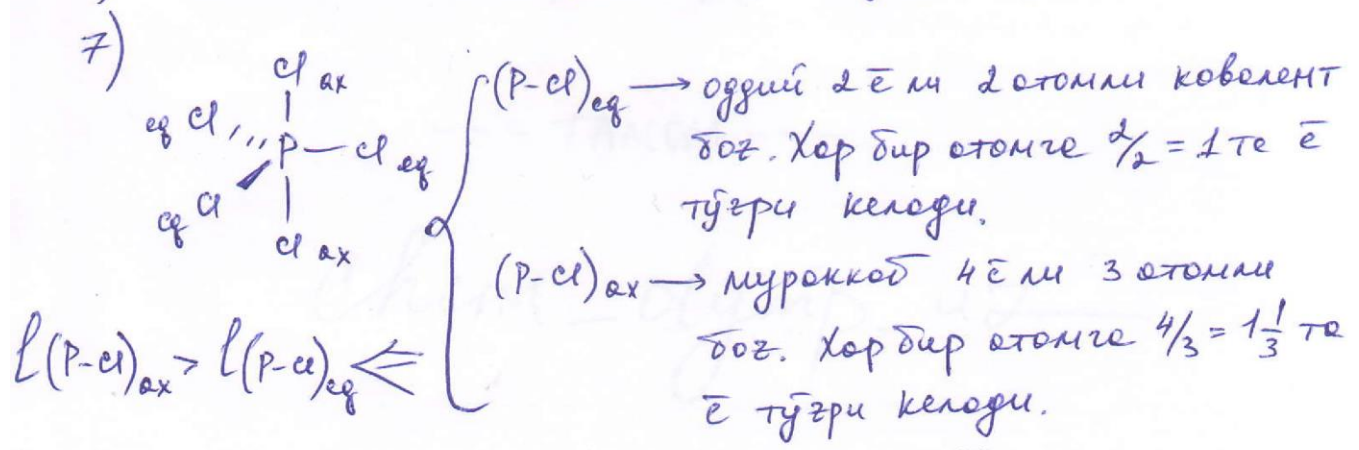 7)
Cl ax
eq Cl P — Cl eq
eq Cl
Cl ax
(P-Cl)eq → оддий 2 ē ли 2 атомли ковалент
боғ. Хар бир атомга 2/2 = 1 та ē
тўғри келади.
(P-Cl)ax → мураккаб 4 ē ли 3 атомли
боғ. Хар бир атомга 4/3 = 1 1/3 та
ē тўғри келади.
l(P-Cl)ax > l(P-Cl)eq ⇐